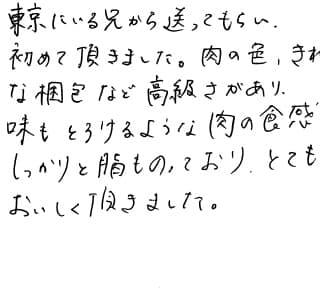 東京にいる兄から送ってもらい、
初めて頂きました。肉の色、きれ
な梱包など高級さがあり、
味もとろけるような肉の食感
しっかりと脂ものっており、とても
おいしく頂きました。